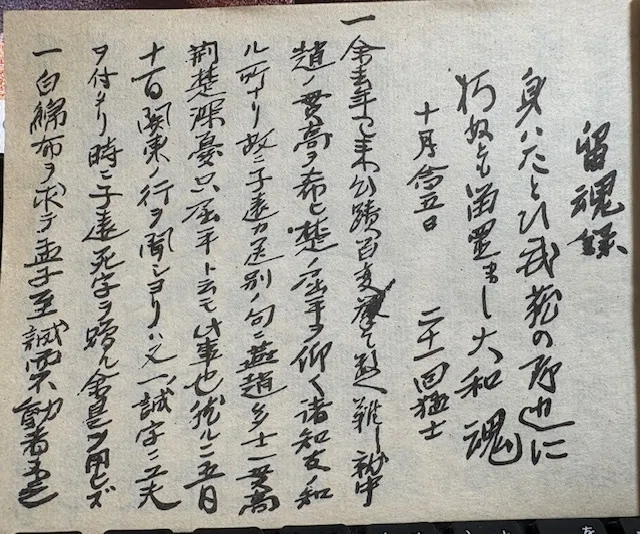 留魂録
身ハたとひ武蔵の野辺に
朽ぬとも留置まし大和魂
十月念五日 二十一回猛士
一余去年已来心蹟百変挙て数へ難し就中
趙ノ貫高ヲ希ヒ楚ノ屈平ヲ仰ク諸知友ノ知
ル所ナリ故ニ子遠カ送別ノ句ニ燕趙多士一貫高
荊楚深憂只屈平ト云モ此事也然ルニ五月
十一日関東ノ行ヲ聞シヨリハ又一ノ誠字ニ工夫
ヲ付タリ時ニ子遠死字ヲ贈ル余是ヲ用ヒズ
一白綿布ヲ求テ孟子至誠而不動者未之